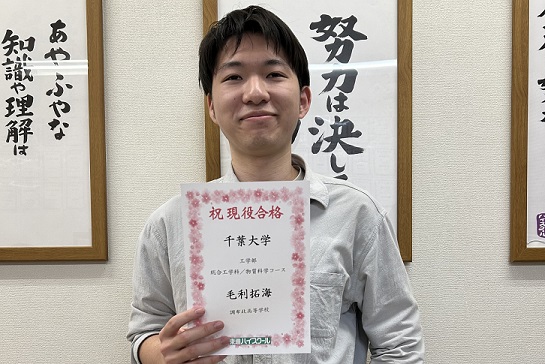 あやふやな
知識や理解は
努力は
決し
祝 現役合格
千葉大学
工学部
総合工学科／物質科学コース
毛利拓海
調布北高等学校
東進ハイスクール